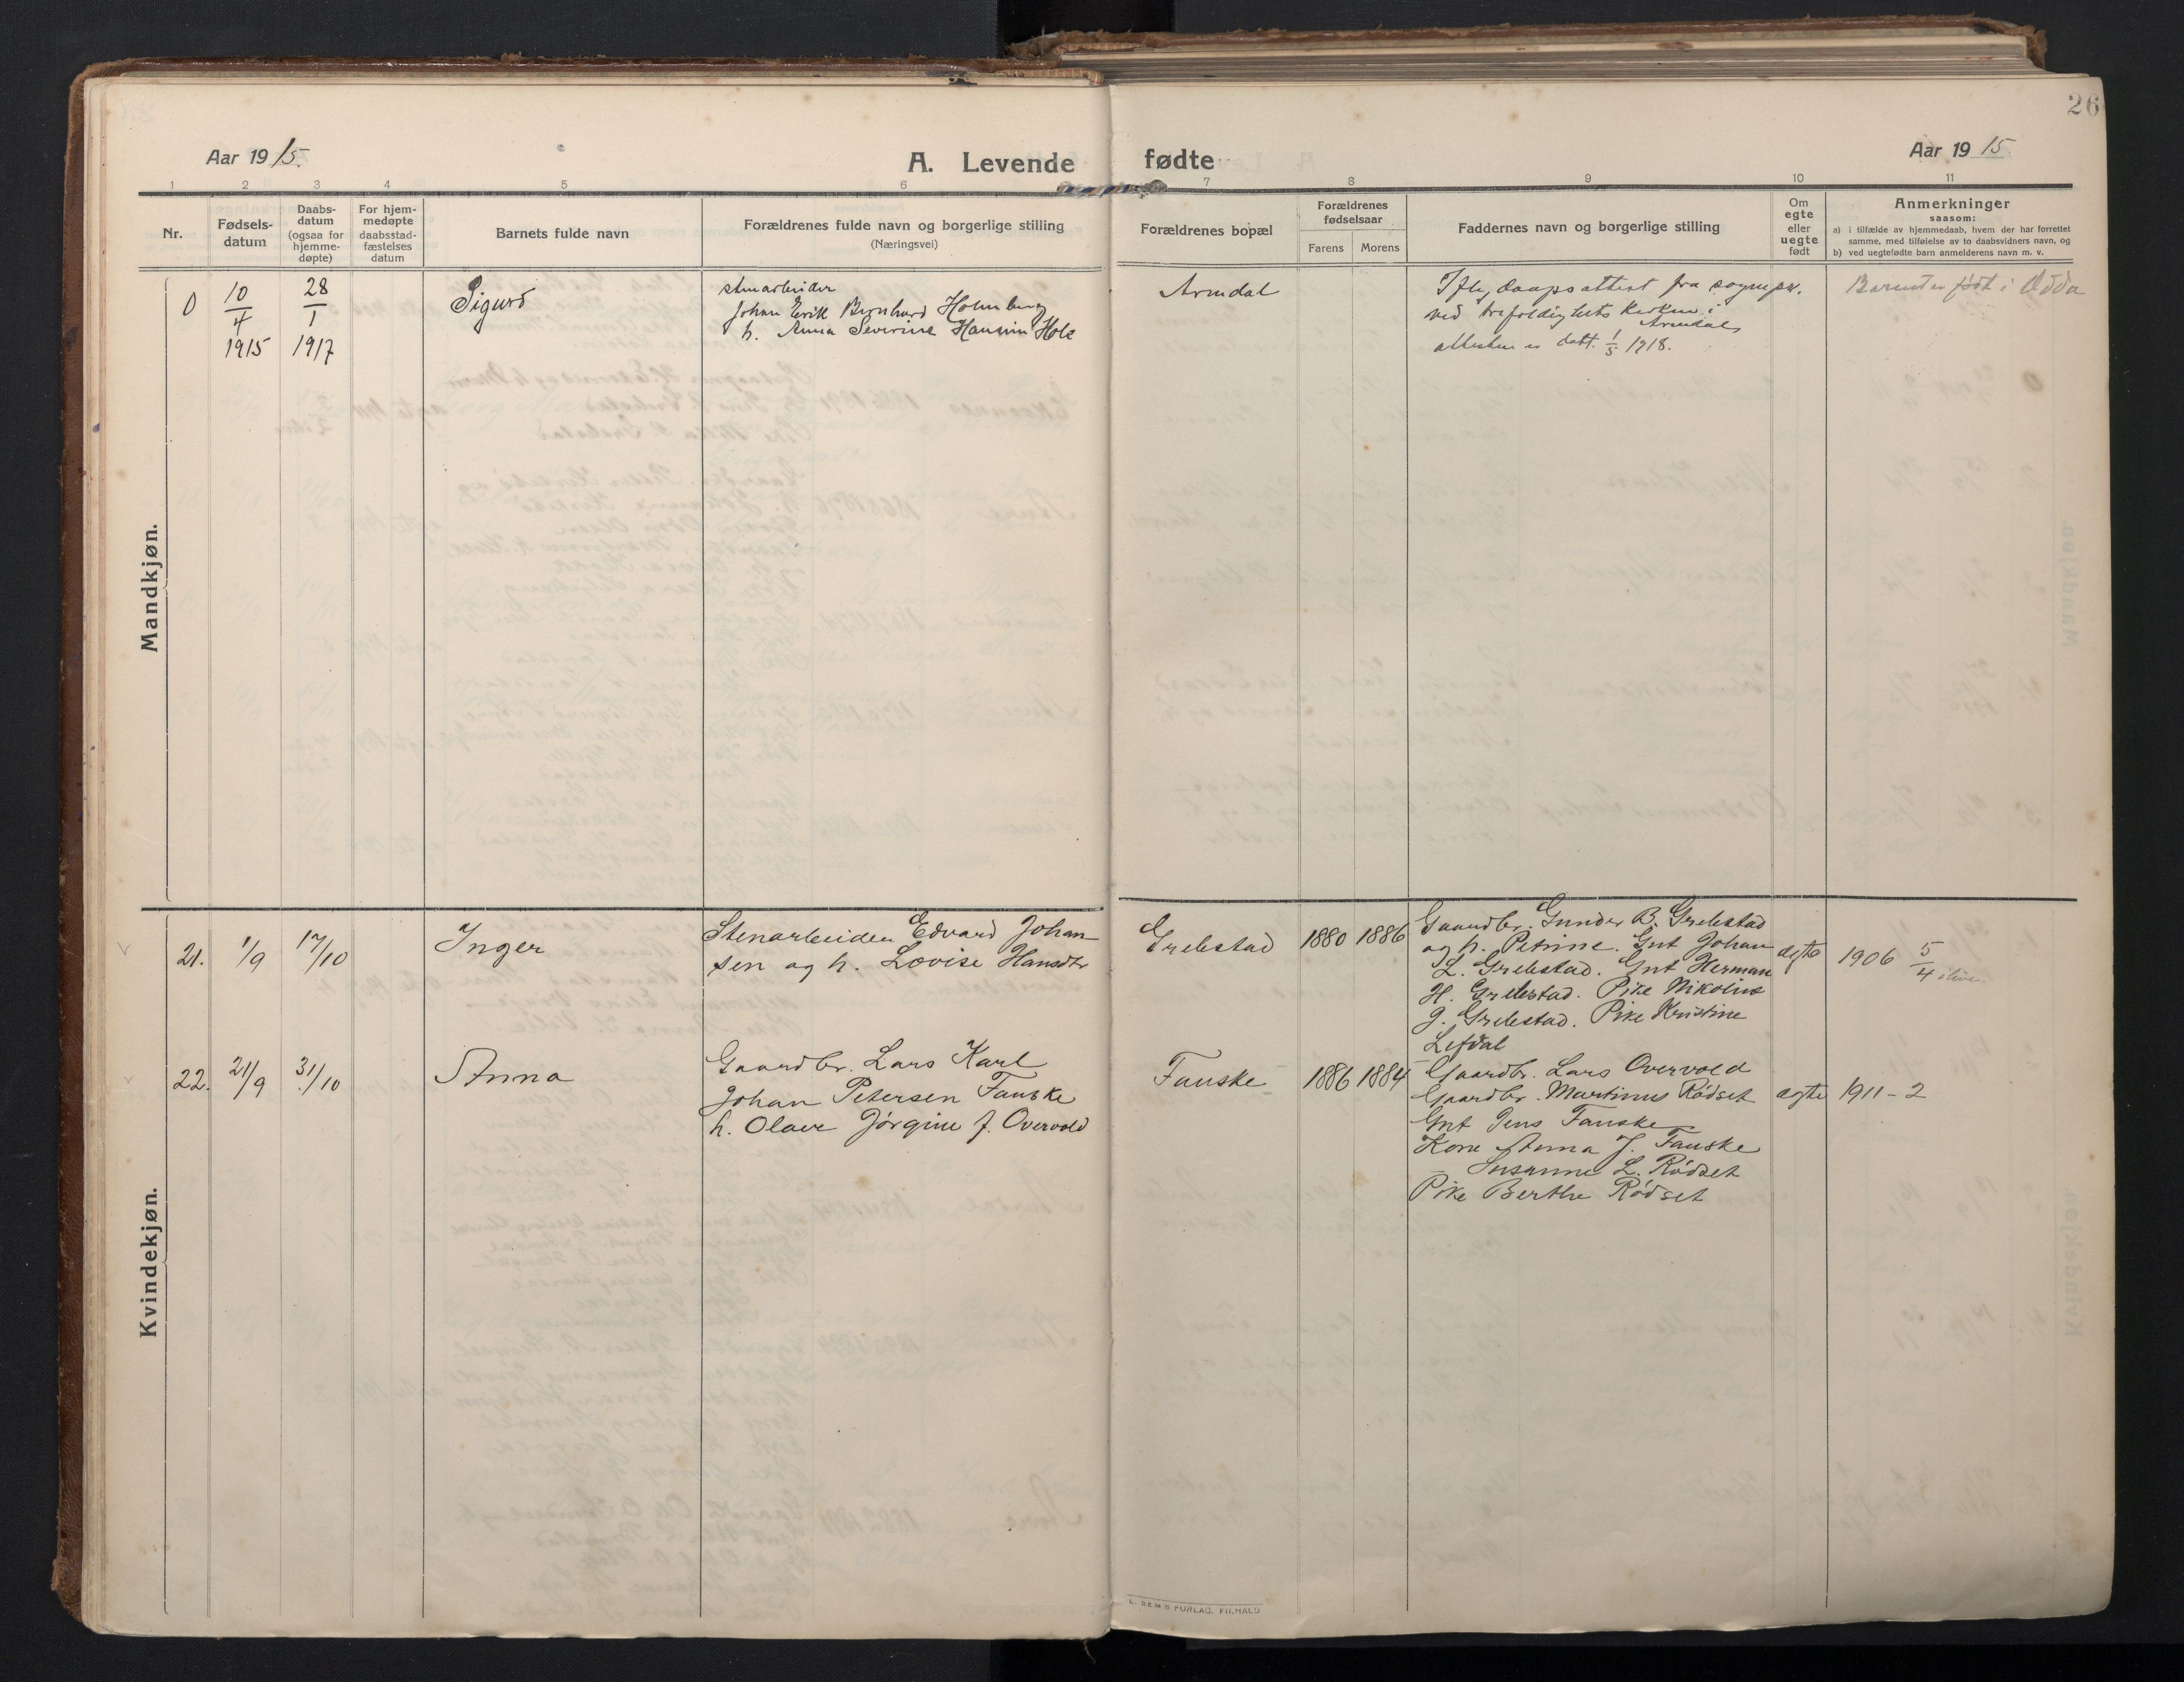 26
Aar 1915.
A. Levende fødte
Aar 1915
1 2 3 4 5 6 7 8 9 10 11
Nr.
Fødsels-
datum
Daabs-
datum
(ogsaa for
hjemme-
døpte)
For hjem-
medøpte
daabsstad-
fæstelses
datum
Barnets fulde navn
Forældrenes fulde navn og borgerlige stilling
(Næringsvei)
Forældrenes bopæl
Forældrenes
fødselsaar
Farens Morens
Faddernes navn og borgerlige stilling
Om
egte
eller
uegte
født
Anmerkninger
saasom:
a) i tilfælde av hjemmedaab, hvem der har forrettet
samme, med tilføielse av to daabsvidners navn, og
b) ved uegtefødte barn anmelderens navn m. v.
Mandkjøn.
0
10/4
1915
28/1
1917
Sigurd
stenarbeider
Johan Erik Bernhard Holmberg
h. Anna Severine Hansen Hole
Arendal
Iflg daapsattest fra sognepr.
ved trefoldighets kirken i
Arendal,
attesten er datt. 1/5 1918.
Barnet er født i Odda
Kvindekjøn.
21. 1/9 17/10 Inger
Stenarbeider Edvard Johan-
sen og h. Lovise Hansdtr
Grebstad 1880 1886
Gaardbr. Gunder B. Grebstad
og h. Petrine. Gut Johan
L. Grebstad. Gut Herman
H. Grebstad. Pike Nikoline
J. Grebstad. Pike Kristine
Lefdal
egte
1906 5/4
22. 21/9 31/10 Anna
Gaardbr. Lars Karl
Johan Petersen Fauske
h. Olave Jørgine J. Overvold
Fauske 1886 1884
Gaardbr. Lars Overvold
Gaardbr. Martinus Rødset
Gut Jens Fauske
Kone Anna J. Fauske
– Susanne L. Rødset
Pike Berthe Rødset
egte
1911 – 2
L. SEM'S FORLAG, FR.HALD